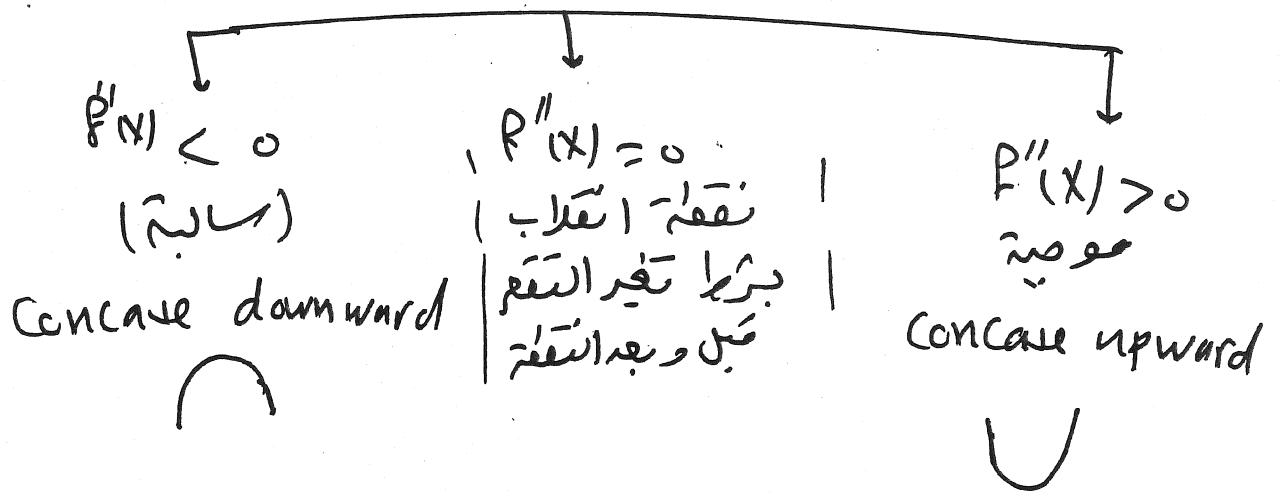 f''(x) < 0
(سالبة)
Concave downward
f''(x) = 0
نقطة انقلاب
بشرط تغير التقعر
قبل وبعد النقطة
f''(x) > 0
موجبة
Concave upward